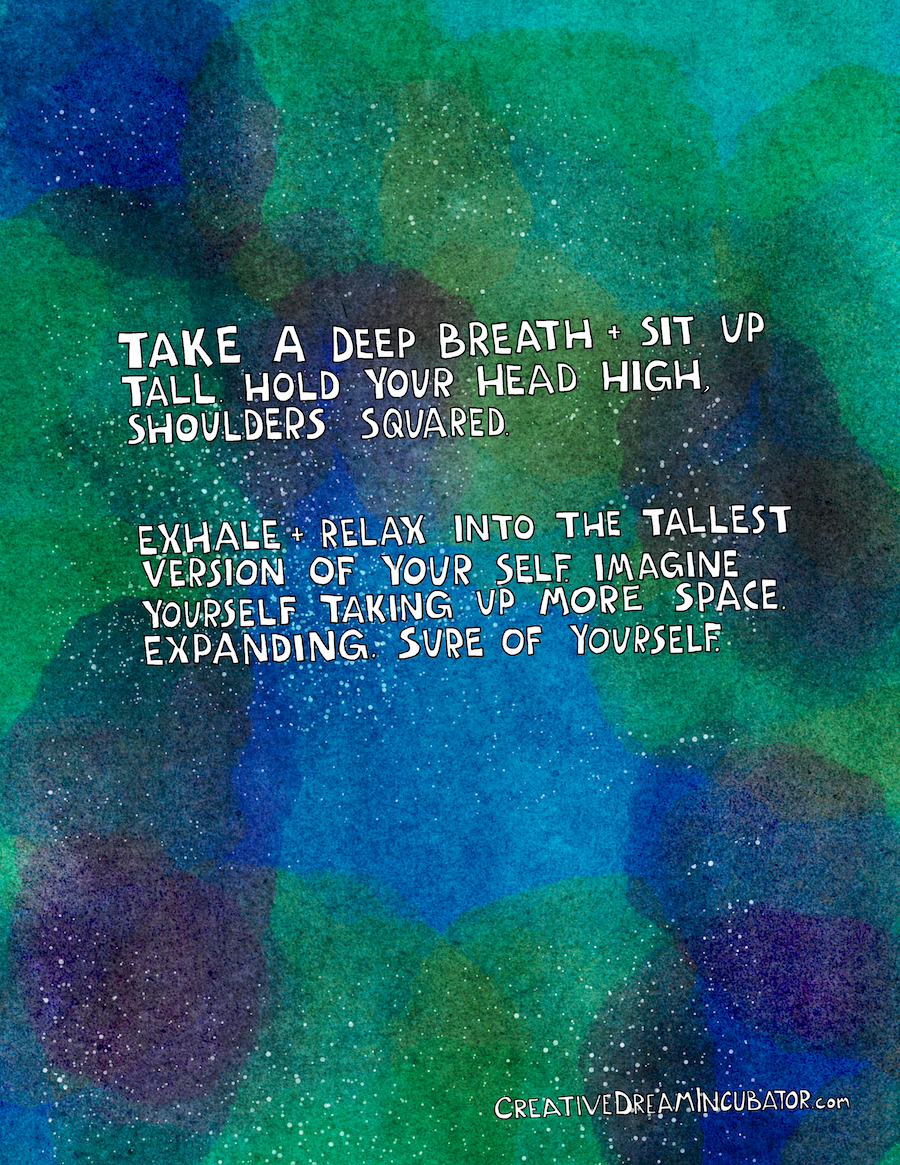 TAKE A DEEP BREATH + SIT UP
TALL. HOLD YOUR HEAD HIGH,
SHOULDERS SQUARED.
EXHALE + RELAX INTO THE TALLEST
VERSION OF YOUR SELF. IMAGINE
YOURSELF TAKING UP MORE SPACE.
EXPANDING. SURE OF YOURSELF.
CREATIVEDREAMINCUBATOR.com